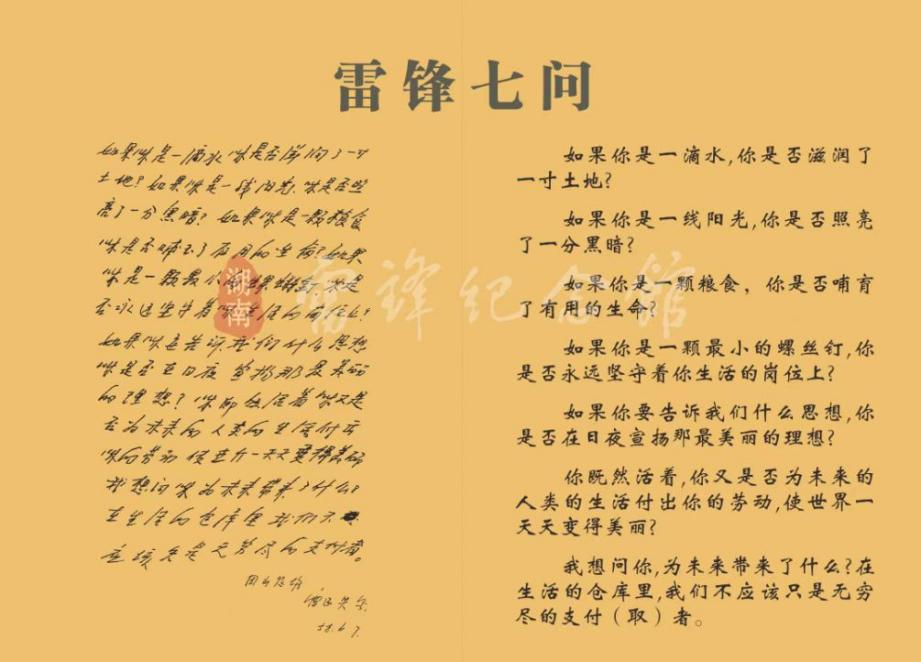 雷锋七问
如果你是一滴水你是否滋润了一寸
土地?如果你是一线阳光,你是否照
亮了一分黑暗?如果你是一颗粮食
你是否哺育了有用的生命?如果
你是一颗最小的螺丝钉你是
否永远坚守着你生活的岗位上?
如果你要告诉我们什么思想
你是否在日夜宣扬那最美丽
的理想?你既然活着你又是
否为未来的人类的生活付出
你的劳动 使世界一天天变得美丽
我想问你为未来带来了什么?
在生活的仓库里我们不
应该只是无穷尽的支付者。
58.6.7.
如果你是一滴水,你是否滋润了
一寸土地?
如果你是一线阳光,你是否照亮
了一分黑暗?
如果你是一颗粮食,你是否哺育
了有用的生命?
如果你是一颗最小的螺丝钉,你
是否永远坚守着你生活的岗位上?
如果你要告诉我们什么思想,你
是否在日夜宣扬那最美丽的理想?
你既然活着,你又是否为未来的
人类的生活付出你的劳动,使世界一
天天变得美丽?
我想问你,为未来带来了什么?在
生活的仓库里,我们不应该只是无穷
尽的支付(取)者。
湖南
雷锋纪念馆